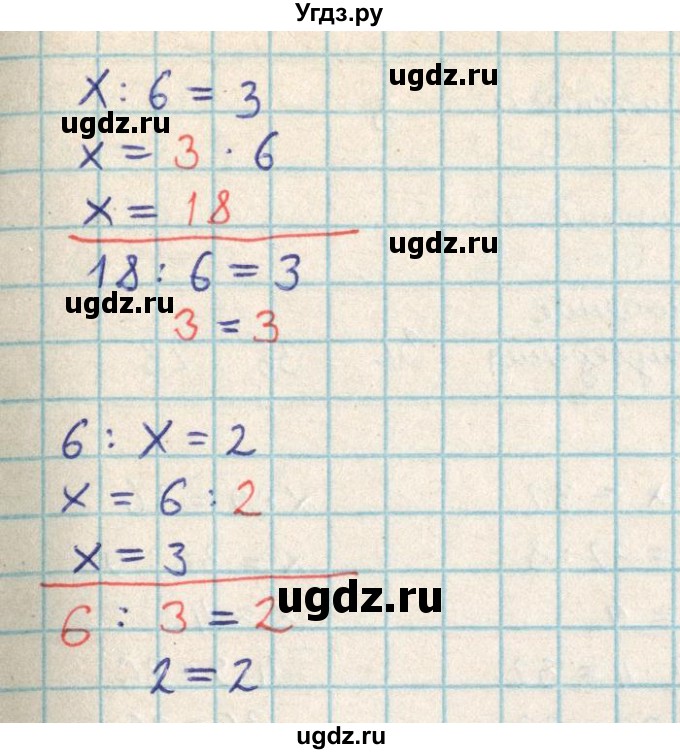 Угдз.ру
x : 6 = 3
ugdz.ru
ugdz.ru
x = 3 · 6
x = 18
ugdz.ru
18 : 6 = 3
ugdz.ru
3 = 3
6 : x = 2
x = 6 : 2
x = 3
ugdz.ru
6 : 3 = 2
2 = 2
ugdz.ru